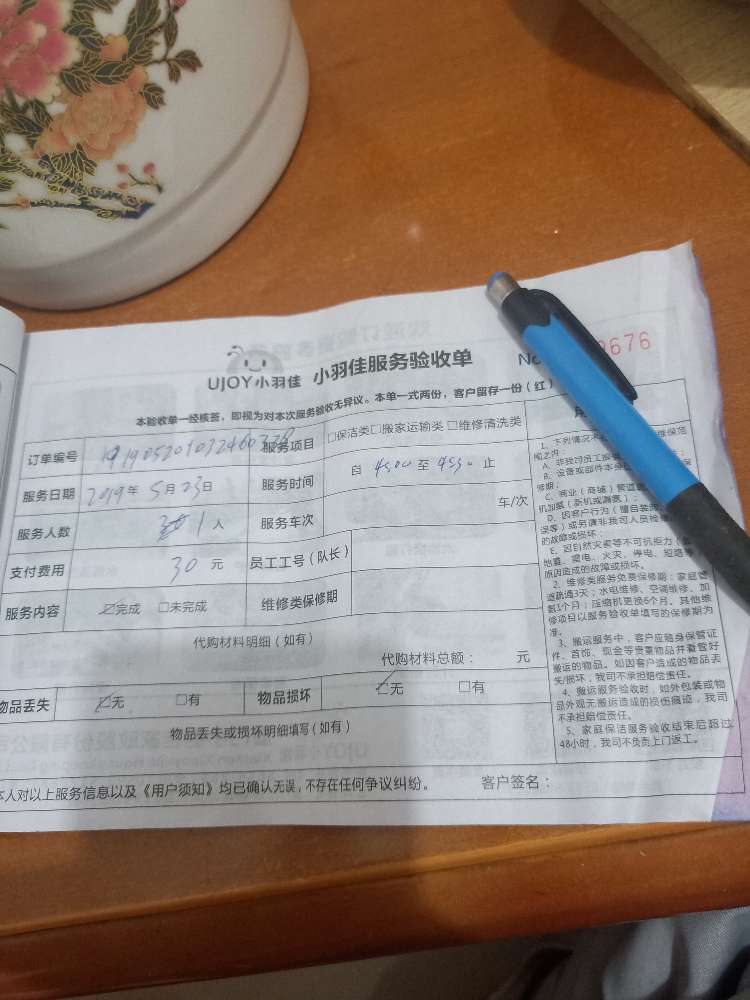 UJOY小羽佳 小羽佳服务验收单 No 9676
本验收单一经核签，即视为对本次服务验收无异议。本单一式两份，客户留存一份（红）
订单编号 服务项目 □保洁类□搬家运输类 □维修清洗类
服务日期 2019年 5月 23日 服务时间 自 至 止
服务人数 1 人 服务车次 车/次
支付费用 30 元 员工工号（队长）
服务内容 ☑完成 □未完成 维修类保修期
代购材料明细（如有）
代购材料总额： 元
物品丢失 ☑无 □有 物品损坏 ☑无 □有
物品丢失或损坏明细填写（如有）
本人对以上服务信息以及《用户须知》均已确认无误，不存在任何争议纠纷。 客户签名：
1、下列情况不
围之内：
A、非我司员工
B、设备或部件本身
修期；
C、商业（商铺）管道
机加氨（新机或漏氨）；
D、因客户行为（擅自
保等）或另请非我司人员检修
的故障或损坏；
E、因自然灾害等不可抗拒力（
地震、雷电、火灾、停电、短路等
原因造成的故障或损坏。
2、维修类服务免费保修期：家庭管
道疏通3天；水电维修、空调维修、加
氨1个月；压缩机更换6个月。其他维
修项目以服务验收单填写的保修期为
准。
3、搬运服务中，客户应随身保管证
件、首饰、现金等贵重物品并看管好
搬运的物品。如因客户造成的物品丢
失/损坏，我司不承担赔偿责任。
4、搬运服务验收时，如外包装或物
品外观无搬运造成的损伤痕迹，我司
不承担赔偿责任。
5、家庭保洁服务验收结束后超过
48小时，我司不负责上门返工。